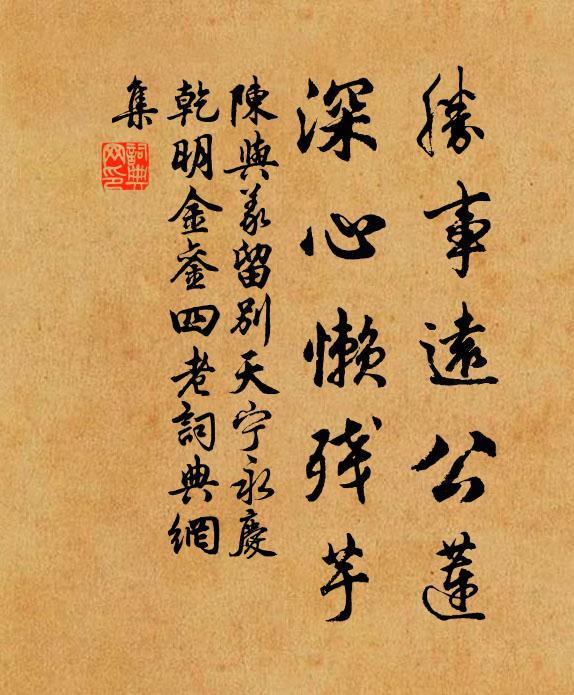 勝事遠公蓮
深心懶残芋
陳與義留别天宁永慶
乾明金銮四老詞典網
集
詞典網印